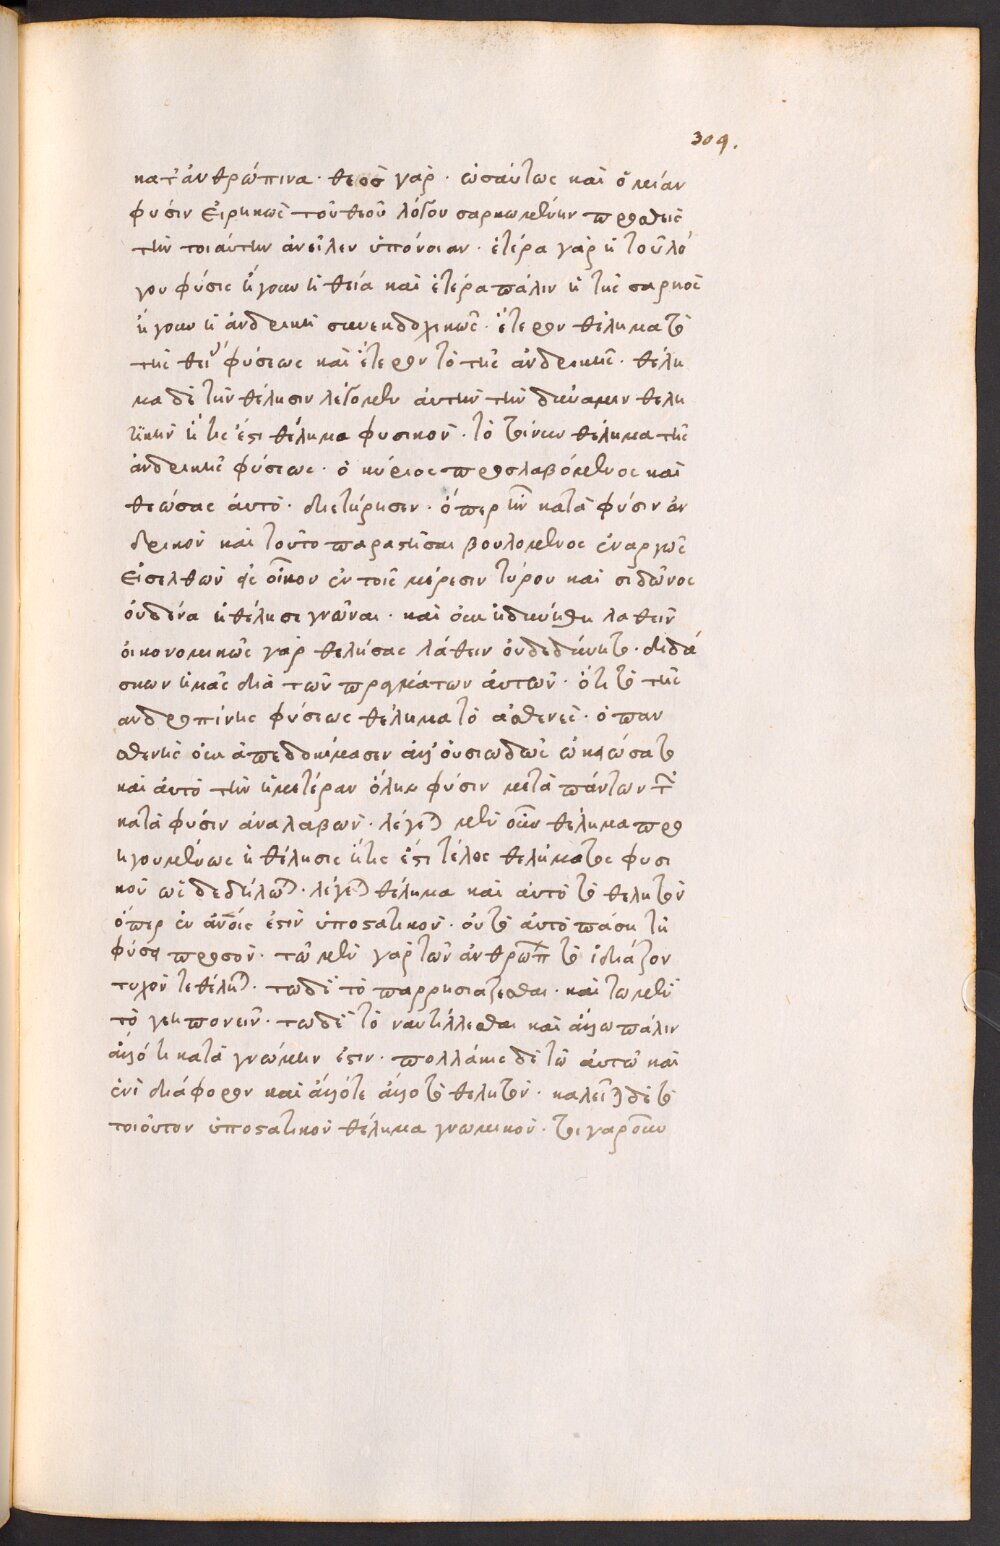 304.
κατ' ἀνθρώπινα · θεὸς γὰρ · ὡσαύτως καὶ ὁ μίαν
φύσιν εἰρηκὼς τοῦ θεοῦ λόγου σαρκωμένην προσθεὶς
τὴν τοιαύτην ἀνεῖλεν ὑπόνοιαν · ἑτέρα γὰρ ἡ τοῦ λό
γου φύσις ἤγουν ἡ θεία καὶ ἑτέρα πάλιν ἡ τῆς σαρκὸς
ἤγουν ἡ ἀνδρικὴ συνεκδοχικῶς · ἕτερον θέλημα τὸ
τῆς θεί φύσεως καὶ ἕτερον τὸ τῆς ἀνδρικῆς · θέλη
μα δὲ τὴν θέλησιν λέγομεν αὐτὴν τὴν δύναμιν θελη
τικὴν ἥτις ἐστὶ θέλημα φυσικὸν · τὸ τοίνυν θέλημα τῆς
ἀνδρικῆς φύσεως · ὁ κύριος προσλαβόμενος καὶ
θεώσας αὐτὸ · διετήρησεν · ὅπερ ἦν κατὰ φύσιν ἀν
δρικὸν καὶ τοῦτο παραστῆσαι βουλόμενος ἐναργῶς
εἰσελθὼν εἰς οἶκον ἐν τοῖς μέρεσιν τύρου καὶ σιδῶνος
οὐδένα ἠθέλησε γνῶναι · καὶ οὐκ ἠδυνήθη λαθεῖν
οἰκονομικῶς γὰρ θελήσας λάθειν οὐ δεδύνητο · διδά
σκων ἡμᾶς διὰ τῶν πραγμάτων αὐτῶν · ὅτι τὸ τῆς
ανδροπίνης φύσεως θέλημα τὸ ἀσθενὲς · ὁ παν
σθενὴς οὐκ ἀπεδοκίμασεν ἀλλ' οὐσιωδῶς ᾠκειώσατο
καὶ αὐτὸ τὴν ἡμετέραν ὅλην φύσιν μετὰ πάντων τῶν
κατὰ φύσιν ἀναλαβὼν · λέγεται μὲν οὖν θέλημα προ
ηγουμένως ἡ θέλησις ἥτις ἐστὶ τέλος θελήματος φυσι
κοῦ ὡς δεδήλωται · λέγεται θέλημα καὶ αὐτὸ τὸ θελητὸν
ὅπερ ἐν ἀνοις ἐστὶν ὑποστατικὸν · οὔτε αὐτὸ πάση τῇ
φύσει προσὸν · τῷ μὲν γὰρ τῶν ἀνθρώπ τὸ ἰδιάζον
τυχὸν τεθέληται · τωδὲ τὸ παρρησιάζεσθαι · καὶ τω μὲν
τὸ γεηπονεῖν · τωδὲ τὸ ναυτίλλεσθαι καὶ ἄλλω πάλιν
ἄλλό τι κατὰ γνώμην ἐστιν · πολλάκις δὲ τῷ αὐτῷ καὶ
ἑνὶ διάφορον καὶ ἄλλότε ἄλλο τὸ θελητὸν · καλεῖται δὲ τὸ
τοιοῦτον ὑποστατικὸν θέλημα γνωμικὸν · τοι γαροῦν